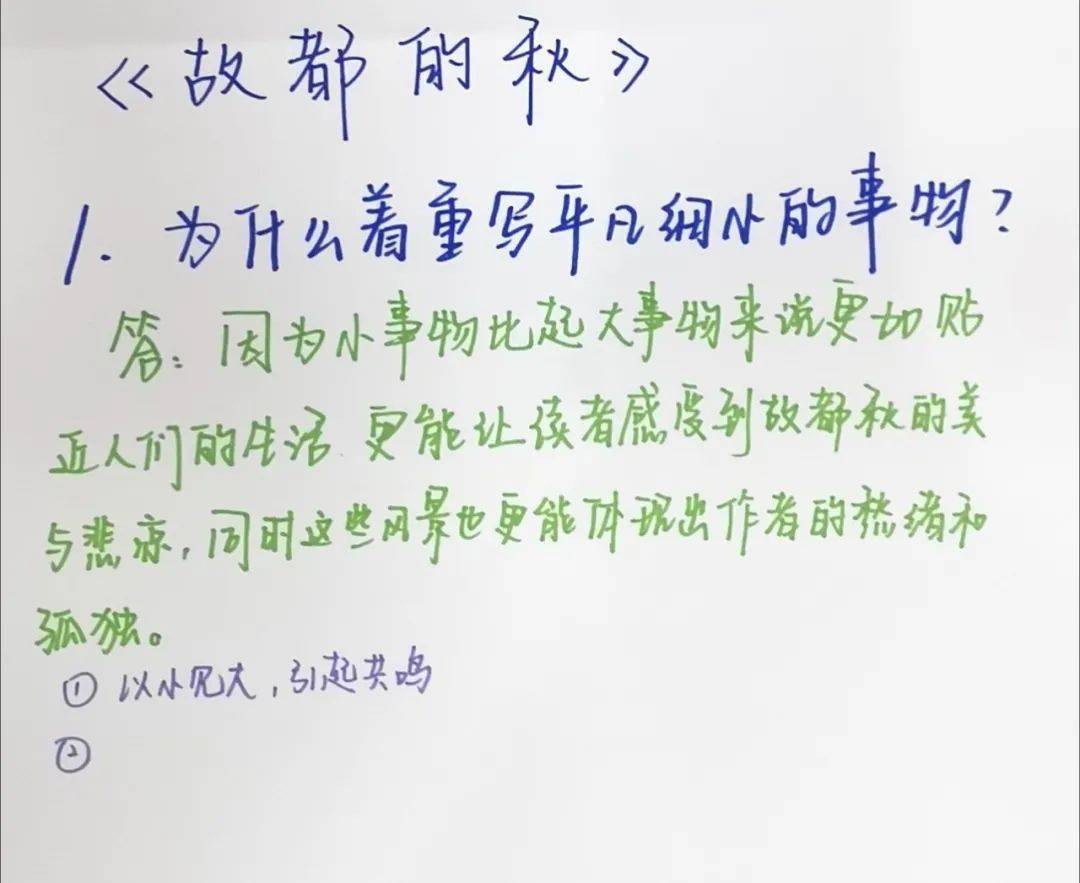 《故都的秋》
1. 为什么着重写平凡细小的事物?
答: 因为小事物比起大事物来说更加贴
近人们的生活 更能让读者感受到故都秋的美
与悲凉, 同时这些风景也更能体现出作者的愁绪和
孤独。
① 以小见大, 引起共鸣
②